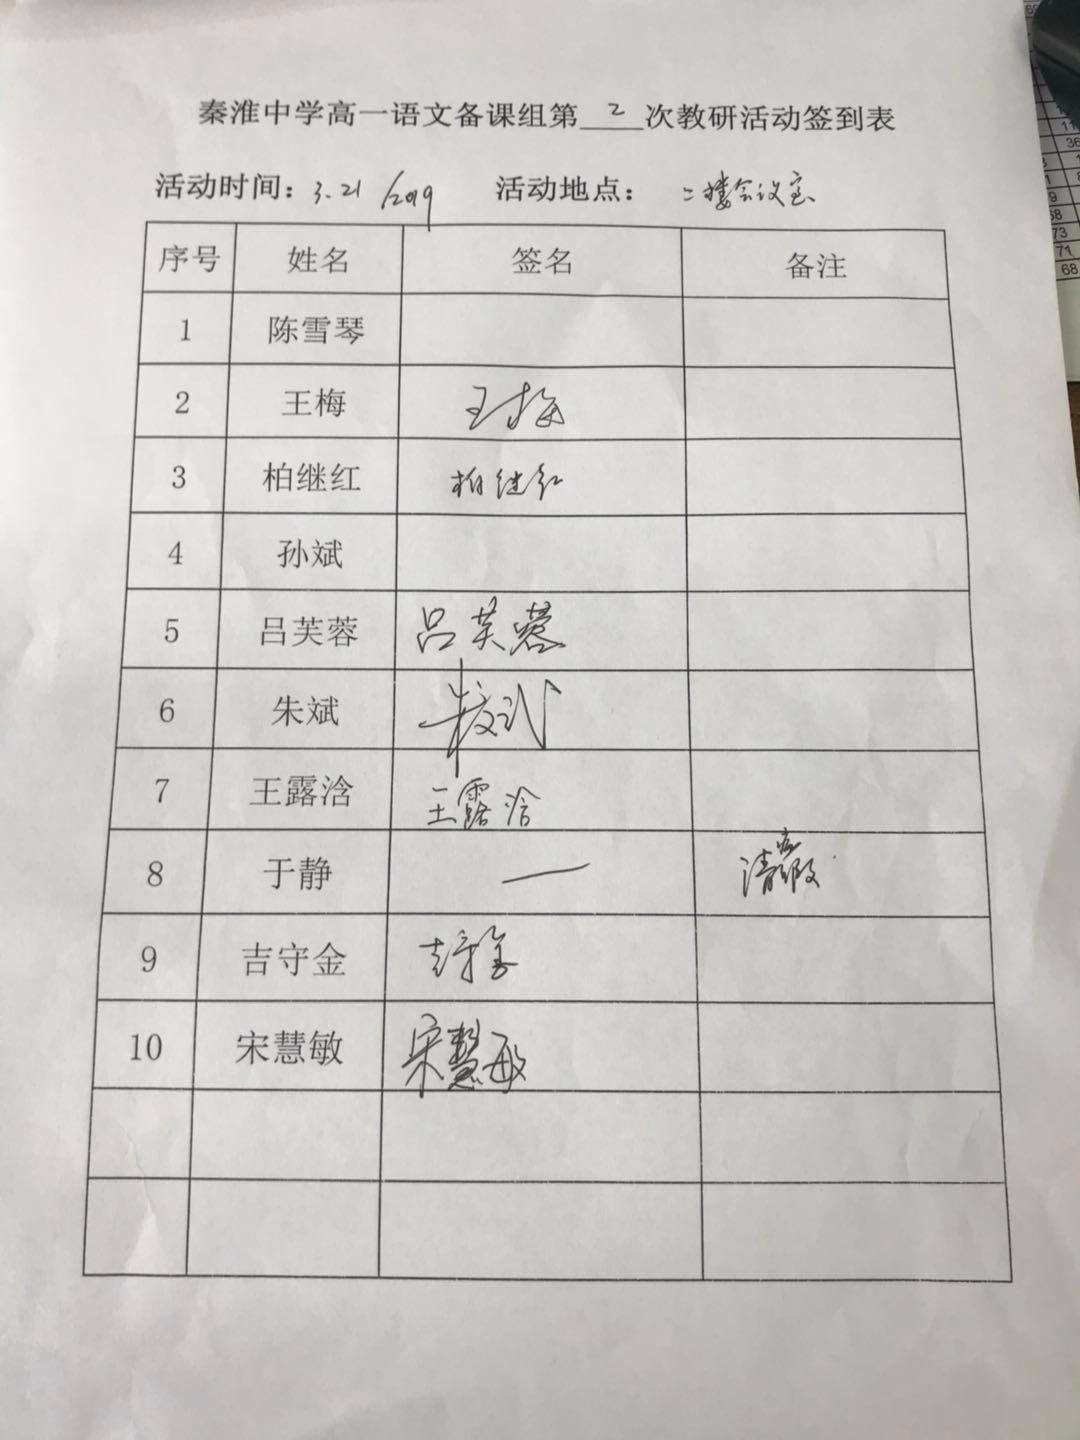 秦淮中学高一语文备课组第2次教研活动签到表
活动时间：3.21/2019 活动地点：二楼会议室
序号 姓名 签名 备注
1 陈雪琴
2 王梅 王梅
3 柏继红 柏继红
4 孙斌
5 吕芙蓉 吕芙蓉
6 朱斌 朱斌
7 王露浛 王露浛
8 于静 — 请假
9 吉守金 吉守金
10 宋慧敏 宋慧敏